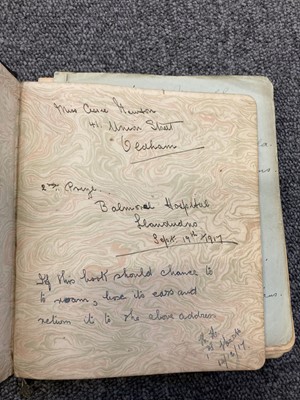 Miss Cissie Newton
41. Union Street
Oldham
2nd Prize
Balmoral Hospital
Llandudno
Sept. 19th 1917
If this book should chance to
to roam, box its ears and
return it to the above address